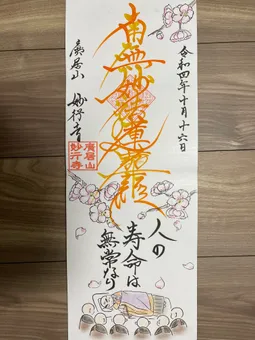 令和四年十月十六日
南無妙法蓮華経
人の
寿命は
無常なり
廣居山
妙行寺
廣居山
妙行寺